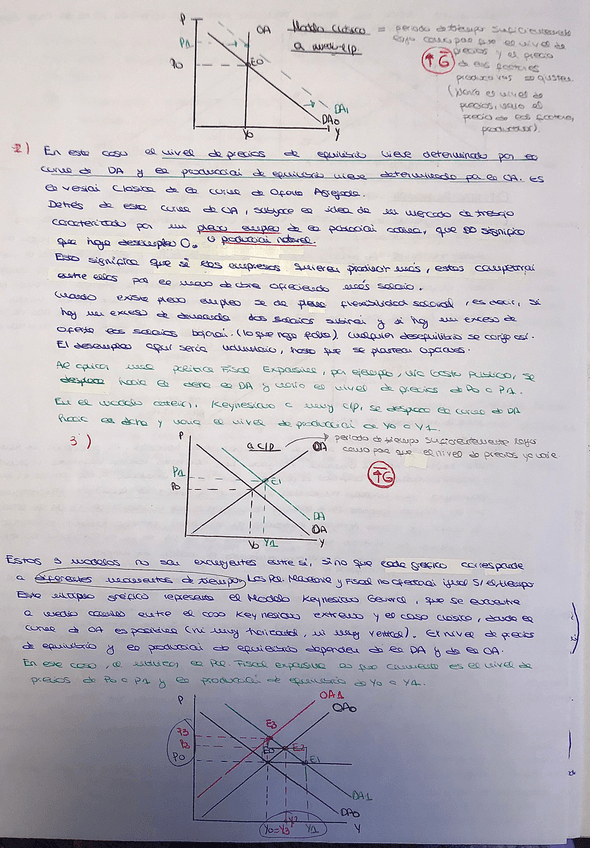 P
OA
Modelo Clásico = periodo de tiempo suficientemente
a muy l/p
largo como para que el nivel de
precios y el precio
de los factores
productivos se ajusten.
(Varía el nivel de
precios, varía el
precio de los factores
productivos).
↑G
P1
P0
E0
DA1
DA0
Y0
Y
2) En este caso el nivel de precios de equilibrio viene determinado por la
curva de DA y la producción de equilibrio viene determinado por la OA. Es
la versión Clásica de la curva de Oferta Agregada.
Detrás de esta curva de OA, subyace la idea de un mercado de trabajo
caracterizado por un pleno empleo de la población activa, que no significa
que haya desempleo 0. o producción natural.
Esto significa que si las empresas quieren producir más, estas competirán
entre ellas por la mano de obra ofreciendo más salario.
Cuando existe pleno empleo se da plena flexibilidad salarial, es decir, si
hay un exceso de demanda los salarios subirán y si hay un exceso de
oferta los salarios bajarán. (lo que haga falta) Cualquier desequilibrio se corrige así.
El desempleo aquí sería voluntario, hasta que se plantean opciones.
Al aplicar una política Fiscal Expansiva, por ejemplo, vía Gasto Público, se
desplaza hacia la dcha la DA y varía el nivel de precios de P0 a P1.
En el modelo anterior, Keynesiano a muy c/p, se desplaza la curva de DA
hacia la dcha y varía el nivel de producción de Y0 a Y1.
3)
P
a c/p
periodo de tiempo suficientemente largo
como para que el nivel de precios ya varíe
OA
↑G
P1
P0
E1
DA
DA
Y0 Y1
Y
Estos 3 modelos no son excluyentes entre sí, sino que cada gráfico corresponde
a diferentes momentos de tiempo. Las Pol. Monetaria y Fiscal no afectarán igual s/ el tiempo
Este último gráfico representa el Modelo Keynesiano General, que se encuentra
a medio camino entre el caso Keynesiano extremo y el caso clásico, donde la
curva de OA es positiva (ni muy horizontal, ni muy vertical). El nivel de precios
de equilibrio y la producción de equilibrio dependen de la DA y de la OA.
En este caso, al utilizar la Pol. Fiscal expansiva lo que aumenta es el nivel de
precios de P0 a P1 y la producción de equilibrio de Y0 a Y1.
P
OA1
OA0
E3
P3
P2
P0
E0
E2
E1
DA1
DA0
Y0=Y3
Y2
Y1
Y